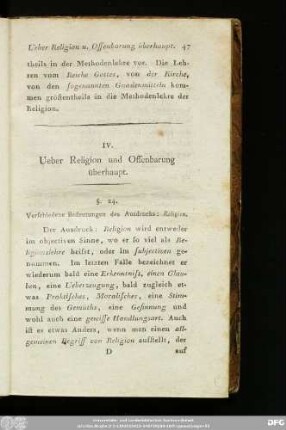 Ueber Religion u. Offenbarung überhaupt. 47
theils in der Methodenlehre vor. Die Leh-
ren vom Reiche Gottes, von der Kirche,
von den sogenannten Gnadenmitteln kom-
men größentheils in die Methodenlehre der
Religion.
IV.
Ueber Religion und Offenbarung
überhaupt.
§. 24.
Verschiedene Bedeutungen des Ausdrucks: Religion.
Der Ausdruck: Religion wird entweder
im objectiven Sinne, wo er so viel als Re-
ligionslehre heißt, oder im subjectiven ge-
nommen. Im letzten Falle bezeichnet er
wiederum bald eine Erkenntniß, einen Glau-
ben, eine Ueberzeugung, bald zugleich et-
was Praktisches, Moralisches, eine Stim-
mung des Gemüths, eine Gesinnung und
wohl auch eine gewisse Handlungsart. Auch
ist es etwas Anders, wenn man einen all-
gemeinen Begriff von Religion aufstellt, der
D auf